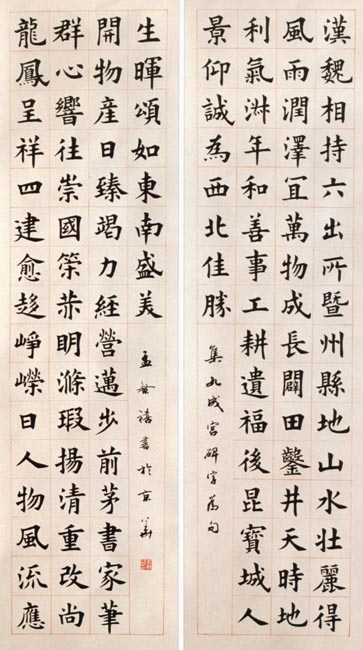 漢魏相持六出所暨州縣地山水壯麗得
風雨潤澤宜萬物成長闢田鑿井天時地
利氣淑年和善事工耕遺福後昆寶城人
景仰誠為西北佳勝
集九成宮碑字為句
龍鳳呈祥四建愈趍崢嶸日人物風流應
群心響往崇國策恭明滌瑕揚清重改尚
開物產日臻竭力經營邁步前茅書家筆
生暉頌如東南盛美
孟繁禧書於京華